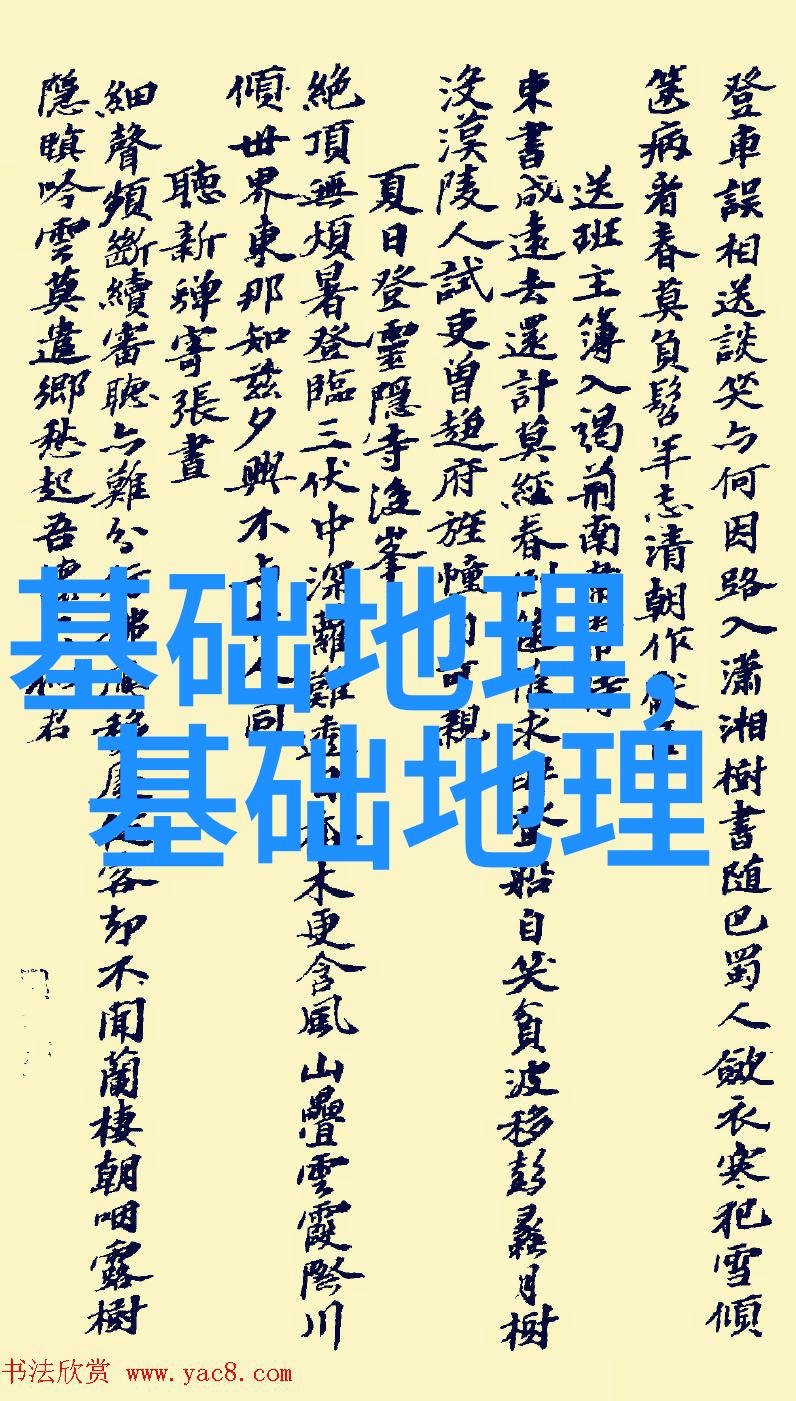 登車誤相送談笑亦何因路入瀟湘樹書随巴蜀人斂衣寒犯雪傾
篋病看春莫負髫年志清朝作
送班主簿入謁荊南
東書成遠去還計莫經春篋求登船自笑貧波移彭蠡月樹
没漢陵人試吏曾趨府旌幢可親
夏日登靈隱寺後峯
絶頂無煩暑登臨三伏中深蘿難透日木更含風山疊雲霞際川
傾世界東那知兹夕興不人同
聽新蟬寄張晝
細聲頻斷續審聽亦難分移處從容却不聞蘭棲朝咽露樹
隱暝吟雲莫遣鄉愁起吾
基础地理,
基础地理
书法欣赏 www.yac8.com